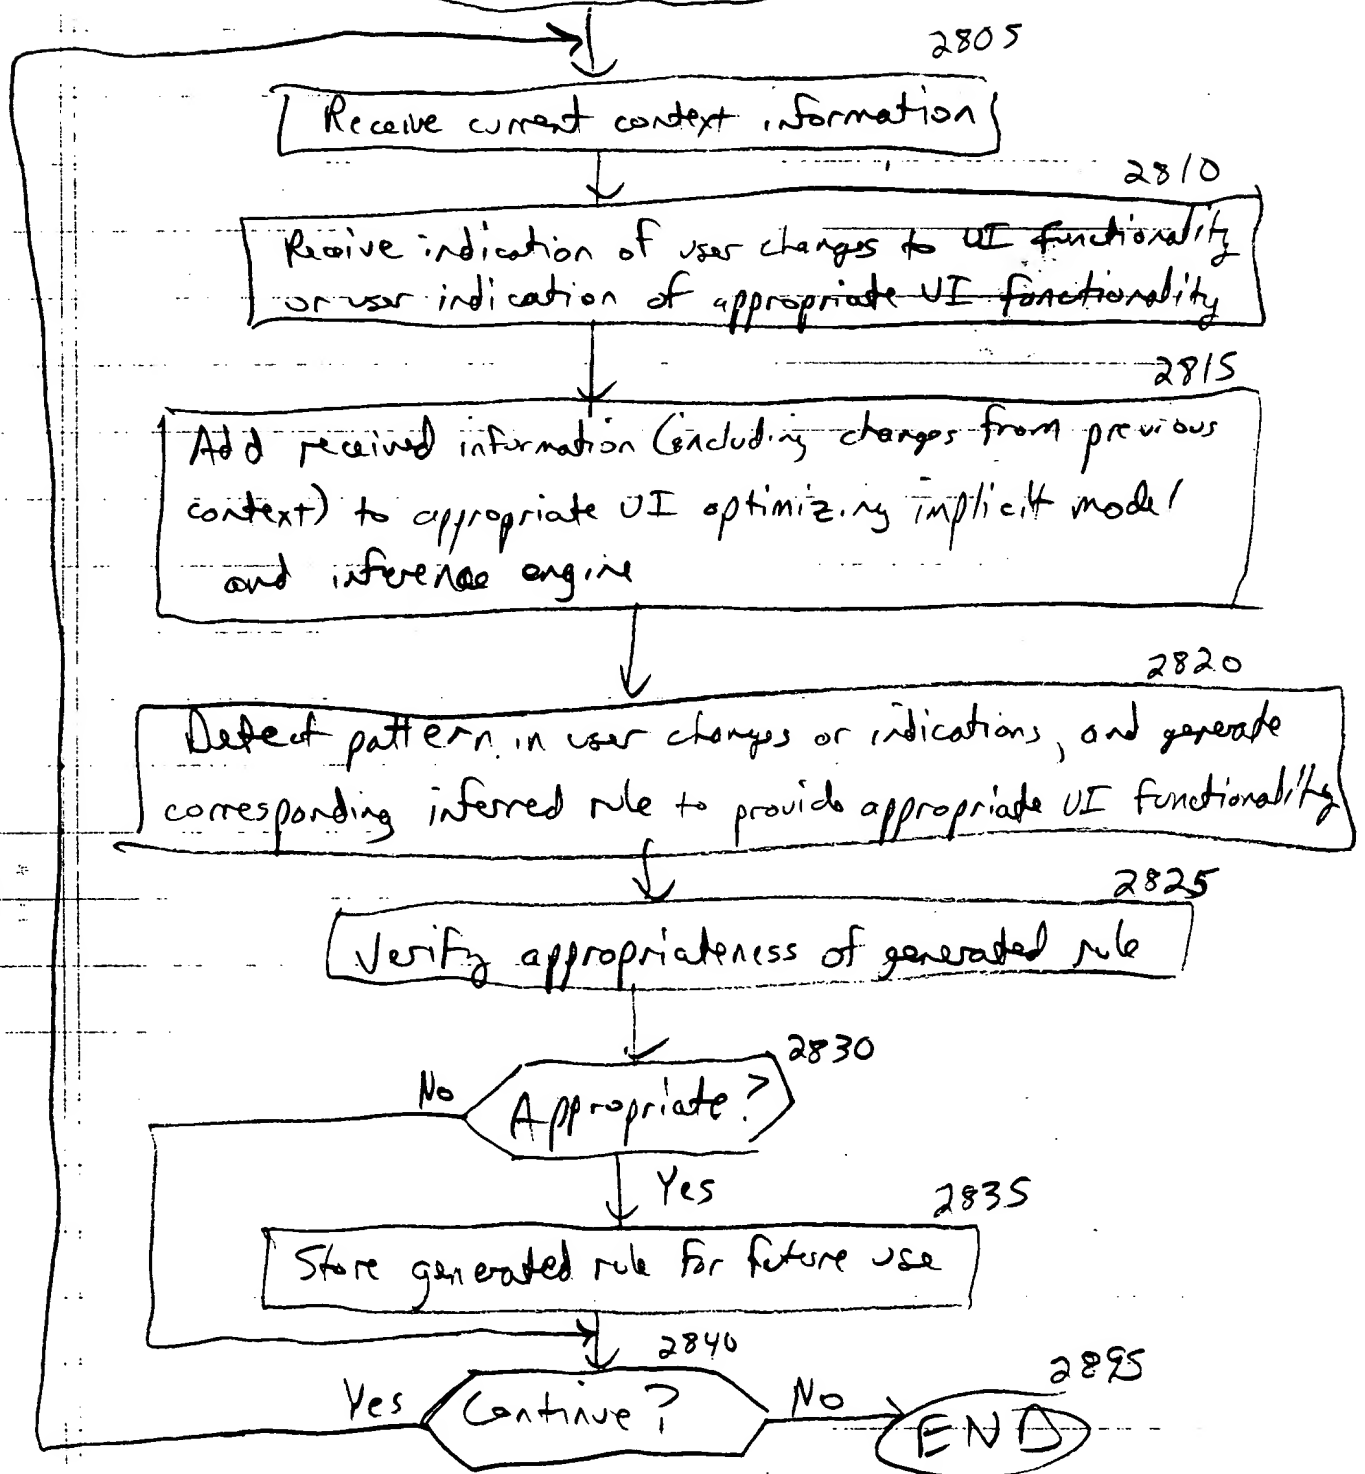 2805
Receive current context information
2810
Receive indication of user changes to UI functionality
or user indication of appropriate UI functionality
2815
Add received information (including changes from previous
context) to appropriate UI optimizing implicit model
and inference engine
2820
Detect pattern in user changes or indications, and generate
corresponding inferred rule to provide appropriate UI functionality
2825
Verify appropriateness of generated rule
2830
No
Appropriate?
Yes
2835
Store generated rule for future use
2840
2895
Yes
Continue?
No
END